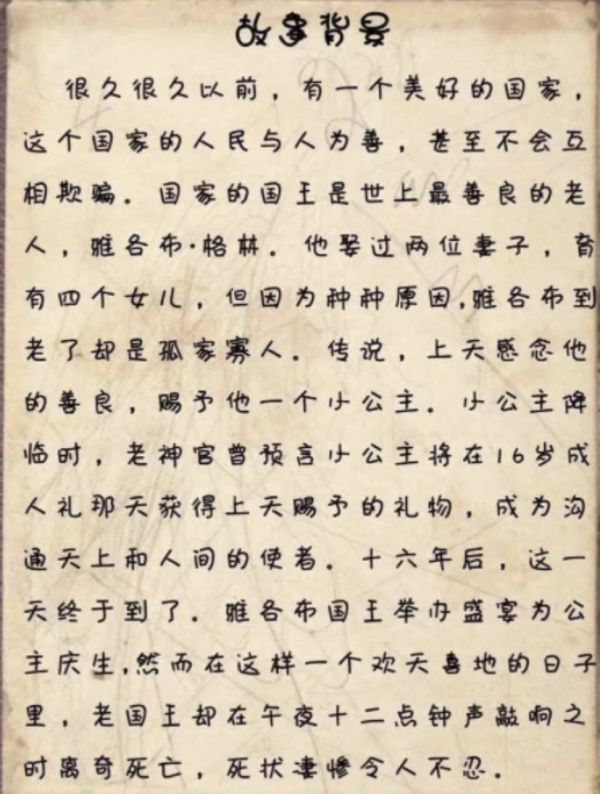 故事背景
很久很久以前，有一个美好的国家，
这个国家的人民与人为善，甚至不会互
相欺骗。国家的国王是世上最善良的老
人，雅各布·格林。他娶过两位妻子，育
有四个女儿，但因为种种原因，雅各布到
老了却是孤家寡人。传说，上天感念他
的善良，赐予他一个小公主。小公主降
临时，老神官曾预言小公主将在16岁成
人礼那天获得上天赐予的礼物，成为沟
通天上和人间的使者。十六年后，这一
天终于到了。雅各布国王举办盛宴为公
主庆生，然而在这样一个欢天喜地的日子
里，老国王却在午夜十二点钟声敲响之
时离奇死亡，死状凄惨令人不忍。